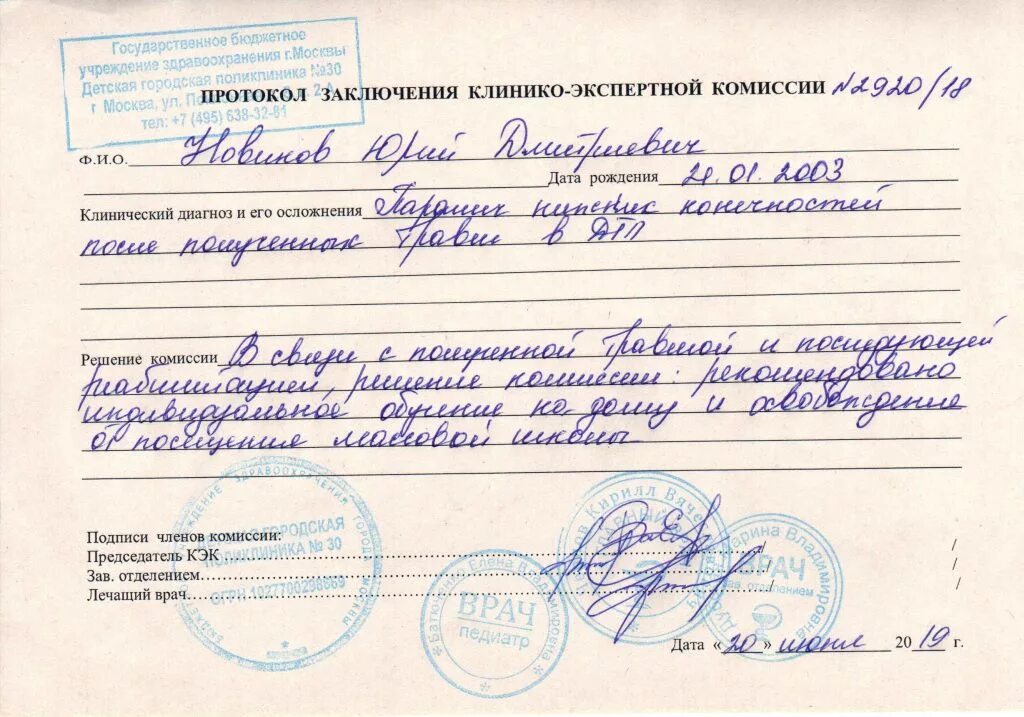 Государственное бюджетное
учреждение здравоохранения г.Москвы
Детская городская поликлиника №30
г Москва, ул.
тел: +7 (495) 638-32-81
ПРОТОКОЛ ЗАКЛЮЧЕНИЯ КЛИНИКО-ЭКСПЕРТНОЙ КОМИССИИ №2920/18
Ф.И.О. Новиков Юрий Дмитриевич
Дата рождения 21.01.2003
Клинический диагноз и его осложнения Паралич нижних конечностей
после полученных травм в ДТП
Решение комиссии В связи с полученной травмой и последующей
реабилитацией, решение комиссии: рекомендовано
индивидуальное обучение на дому и освобождение
от посещение массовой школы
ЗДРАВООХРАНЕНИЯ ГОРОДА МОСКВЫ
ГОРОДСКАЯ
ПОЛИКЛИНИКА № 30
ОГРН 1027700298869
Подписи членов комиссии:
Председатель КЭК
/
Зав. отделением
/
Лечащий врач
/
Елена Владимировна
ВРАЧ
педиатр
Кирилл
Марина Владимировна
ВРАЧ
зав. отделением
Дата «20» июня 2019 г.